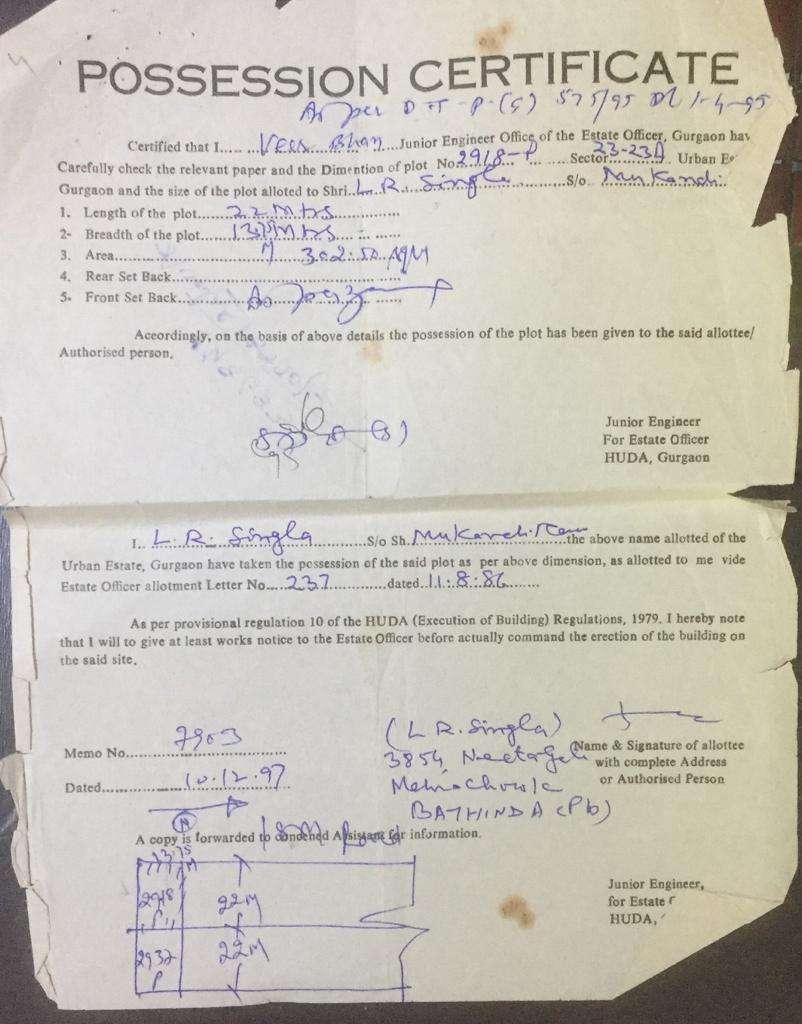 POSSESSION CERTIFICATE
As per D T P (G) 575/95 Dt 1-4-95
Certified that I..... Veer Bhan ...Junior Engineer Office of the Estate Officer, Gurgaon hav
Carefully check the relevant paper and the Dimention of plot No. 2918-P ..... Sector 23-23A Urban E
Gurgaon and the size of the plot alloted to Shri. L. R. Singla ......S/o Mukandi
1. Length of the plot..... 22 Mtrs
2- Breadth of the plot..... 13.75 Mtrs
3. Area..... 302.50 SqM
4. Rear Set Back.....
5. Front Set Back..... As per
Aceordingly, on the basis of above details the possession of the plot has been given to the said allottee/
Authorised person.
Junior Engineer
For Estate Officer
HUDA, Gurgaon
I.. L. R. Singla .....S/o Sh. Mukandi Ram .....the above name allotted of the
Urban Estate, Gurgaon have taken the possession of the said plot as per above dimension, as allotted to me vide
Estate Officer allotment Letter No... 237 .....dated. 11.8.86
As per provisional regulation 10 of the HUDA (Execution of Building) Regulations, 1979. I hereby note
that I will to give at least works notice to the Estate Officer before actually command the erection of the building on
the said site.
Memo No..... 7903
Dated..... 10.12.97
(L R. Singla)
3854,
BATHINDA (Pb)
Name & Signature of allottee
with complete Address
or Authorised Person
A copy is forwarded to condened Assistant for information.
13.75 M
2918 P 22M
2932 P 22M
Junior Engineer,
for Estate
HUDA,